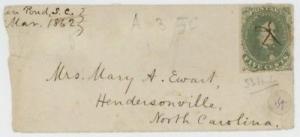 Pond, S.C.
Mar. 1862
A 3 50
Mrs. Mary A. Ewart,
Hendersonville,
North Carolina.